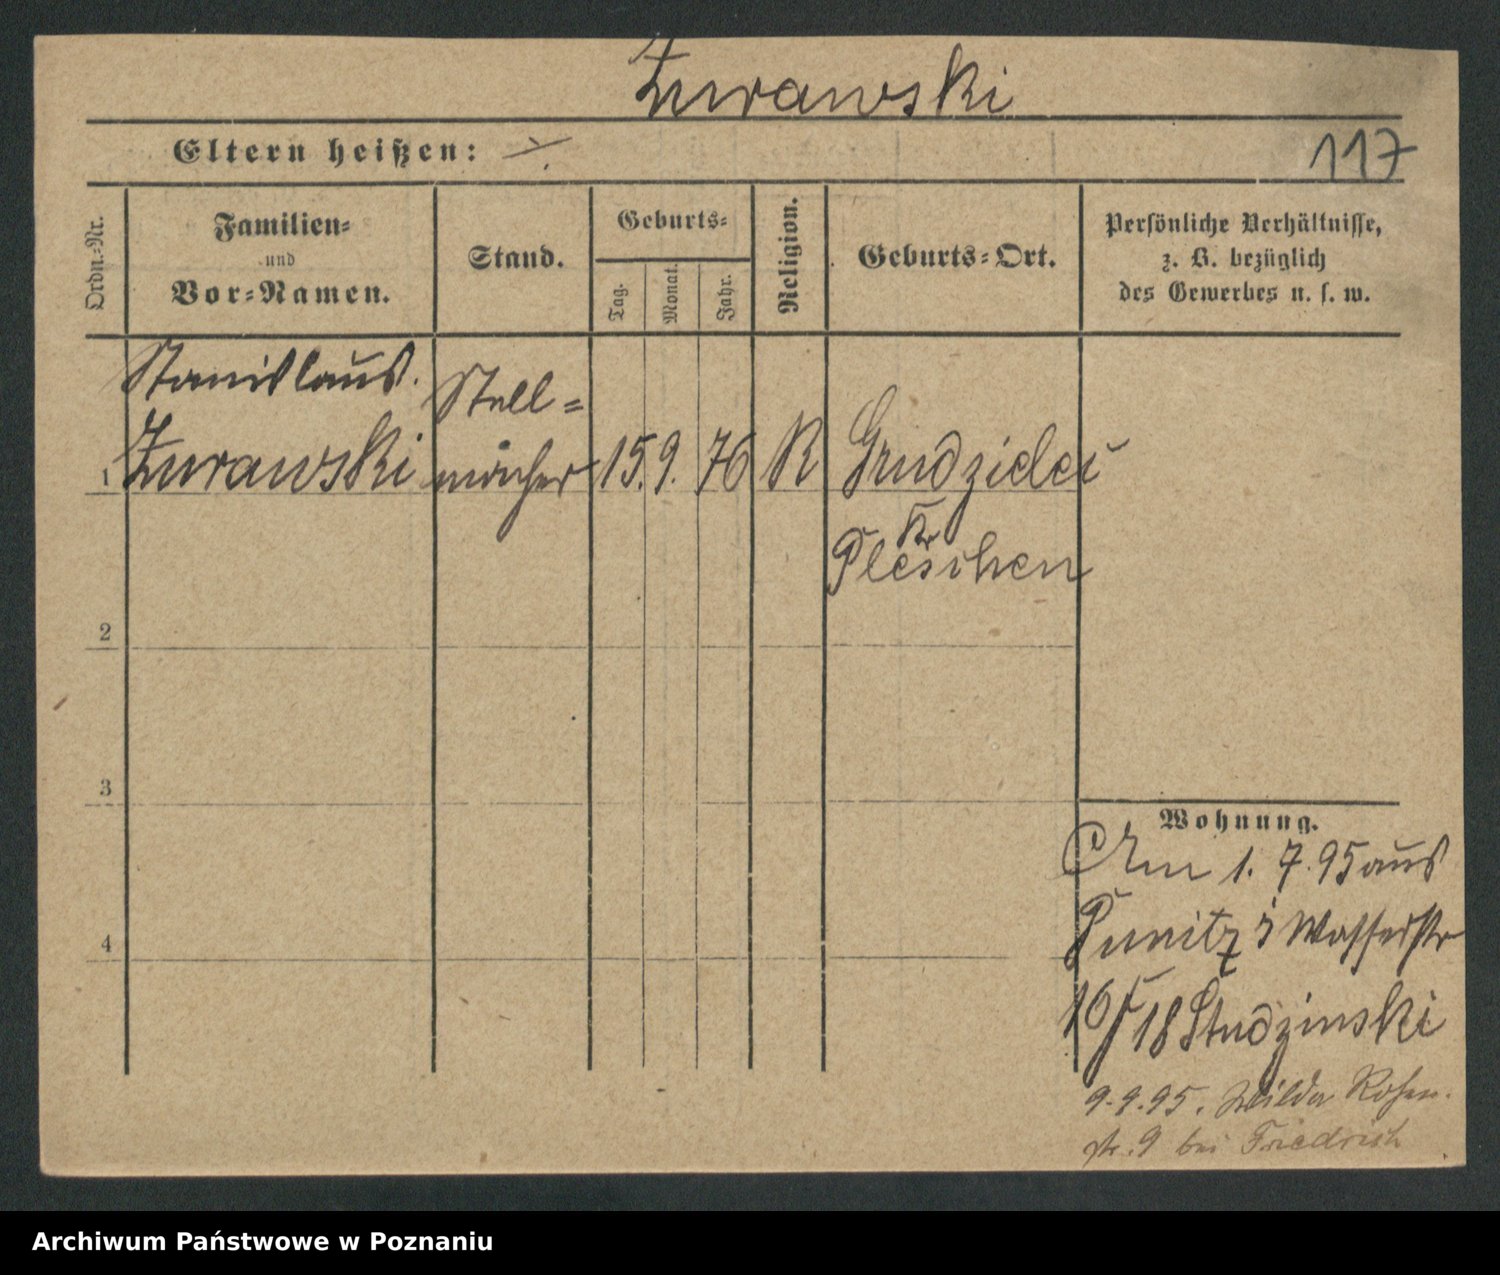 Zurawski
Eltern heißen: ./.
117
Ordn.-Nr.
Familien-
und
Vor-Namen.
Stand.
Geburts-
Tag.
Monat.
Jahr.
Religion.
Geburts-Ort.
Persönliche Verhältnisse,
z. B. bezüglich
des Gewerbes u. s. w.
Stanislaus.
Zurawski
Stell-
macher
1
15. 9. 76
R
Grudzielei
Kr
Pleschen
2
3
4
Wohnung.
Am 1. 7. 95 aus
Punitz Wasserstr
18 Studzinski
9.9.95. Wilda Rosen-
str. 9 bei Friedrich
Archiwum Państwowe w Poznaniu